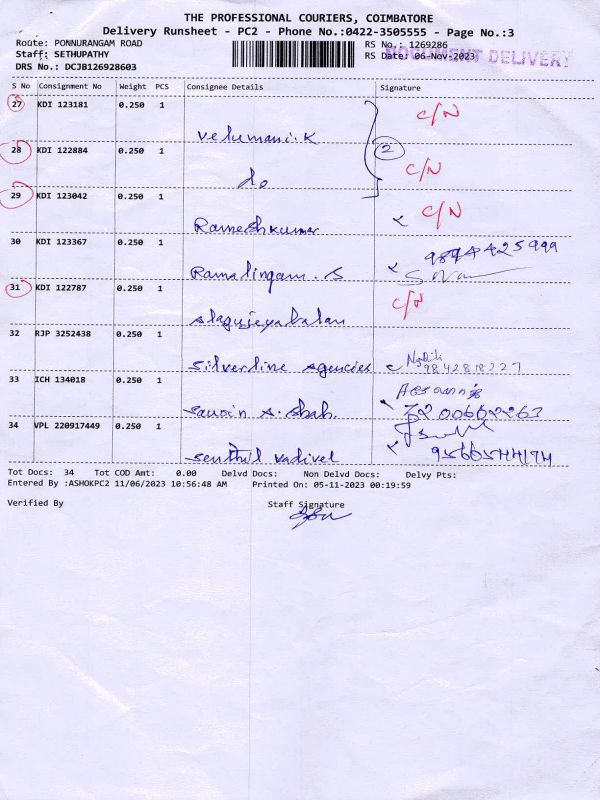 THE PROFESSIONAL COURIERS, COIMBATORE
Delivery Runsheet - PC2 - Phone No.:0422-3505555 - Page No.:3
Route: PONNURANGAM ROAD RS No.: 1269286
Staff: SETHUPATHY RS Date: 06-Nov-2023 DOCUMENT DELIVERY
DRS No.: DCJB126928603
S No Consignment No Weight PCS Consignee Details Signature
27 KDI 123181 0.250 1 C/N
Velumani.K
28 KDI 122884 0.250 1 2 C/N
do
29 KDI 123042 0.250 1 C/N
Rameshkumar
30 KDI 123367 0.250 1 9894425999
Ramalingam.S
31 KDI 122787 0.250 1 C/N
Alagujeyabalan
32 RJP 3252438 0.250 1
Silverline Agencies 9842818227
33 ICH 134018 0.250 1
S. Shah.
34 VPL 220917449 0.250 1
Senthil Vadivel
Tot Docs: 34 Tot COD Amt: 0.00 Delvd Docs: Non Delvd Docs: Delvy Pts:
Entered By :ASHOKPC2 11/06/2023 10:56:48 AM Printed On: 05-11-2023 00:19:59
Verified By Staff Signature